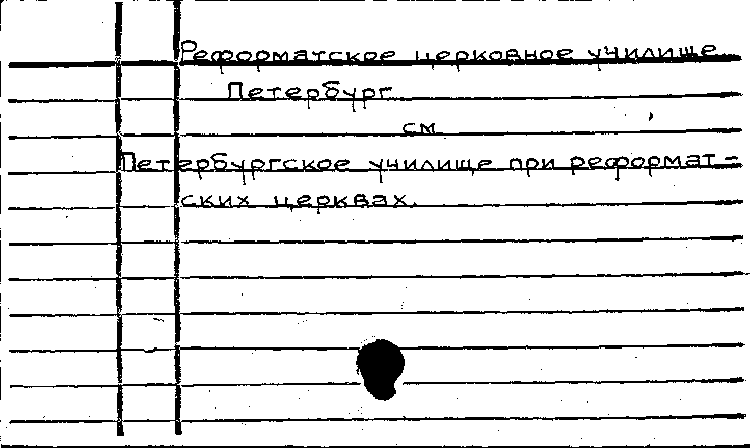 Реформатское церковное училище
Петербург
см
Петербургское училище при реформат-
ских церквах.